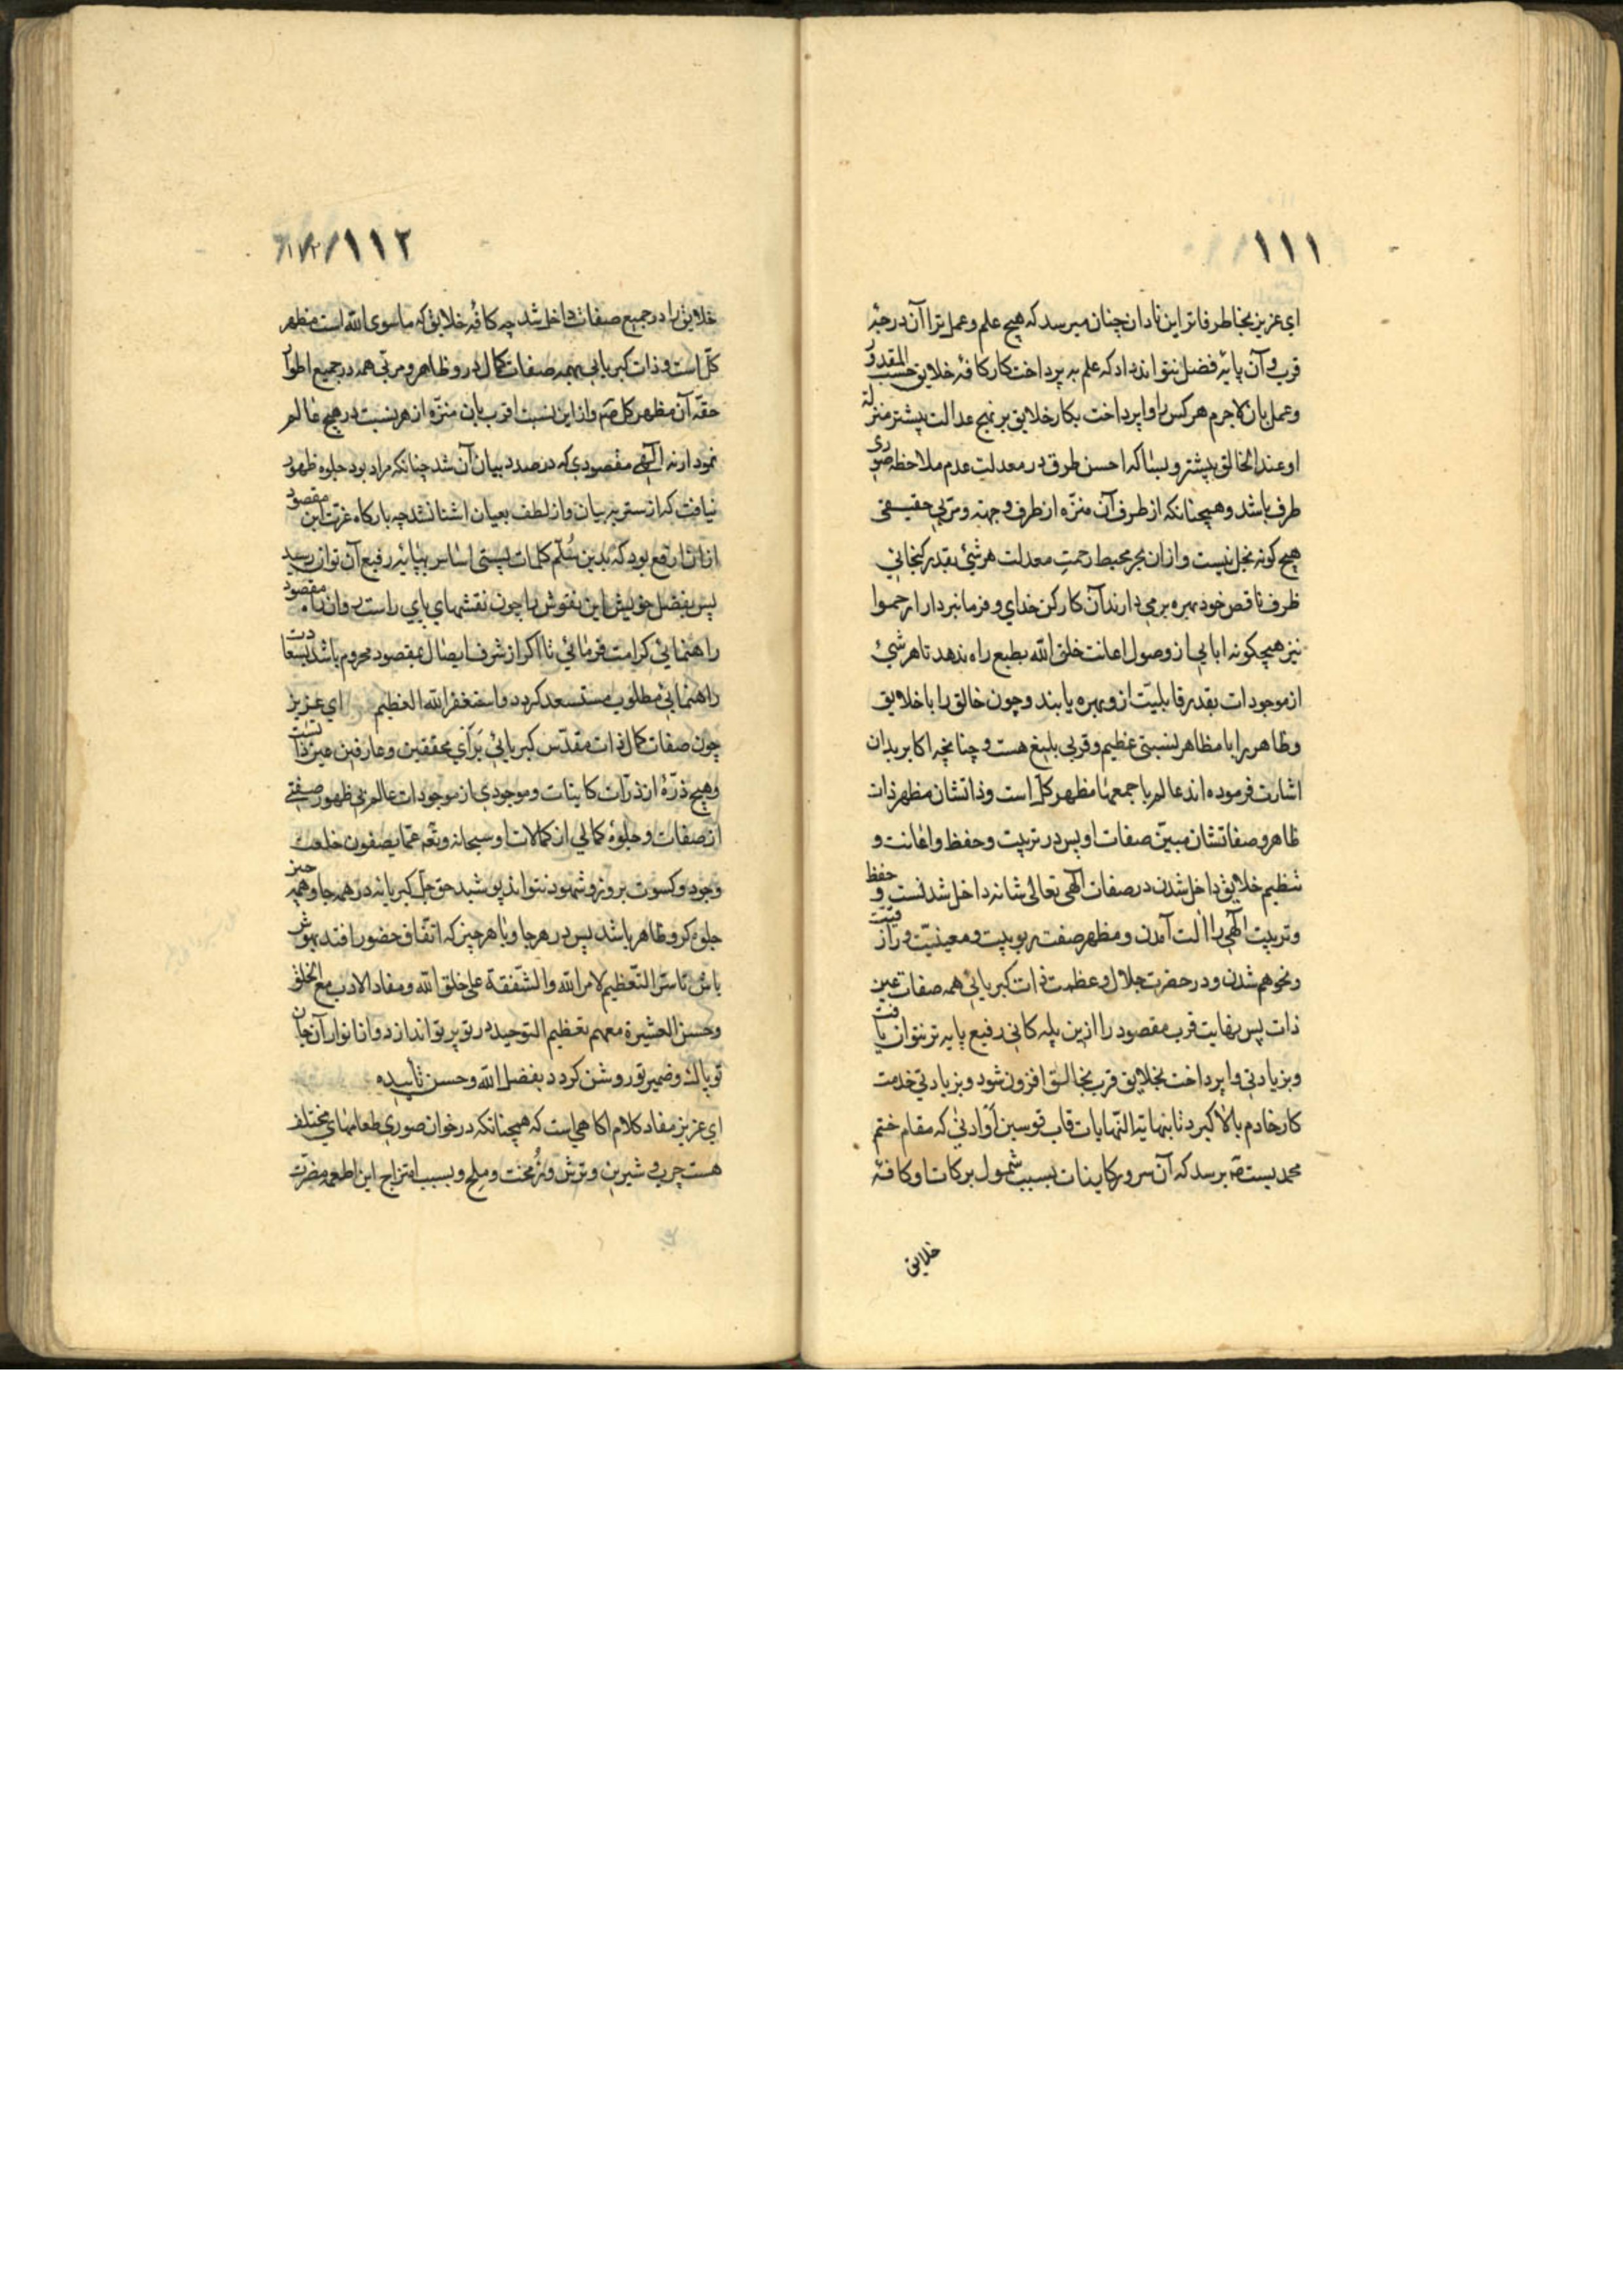 ١١١
اي عزيز بخاطر فاتر اين نادان چنان ميرسد كه هيچ علم و عمل ترا آن درجهٔ
قرب و آن پايهٔ فضل نتواند داد كه علم به پرداخت كار كافهٔ خلايق حسب المقدور
و عمل بان لاجرم هر كس را وا پرداخت بكار خلايق بر نهج عدالت پيشتر منزلة
او عند الخالق بيشتر و بسا كه احسن طرق در معدلت عدم ملاحظهٔ صوري
طرف باشد و هيچنانكه از طرف آن منزّه از طرف و جهة و مربّي حقيقي
هيچ كونه بخل نيست و ازان بحر محيط رحمت معدلت هر شئ بقدر كنجايي
ظرف ناقص خود بهره برمي دارند آن كاركن خداي و فرمانبردار ارحموا
نيز هيچكونه ابايي از وصول اعانت خلق الله بطبع راه ندهد تا هر شئ
از موجودات بقدر قابليّت ازو بهره يابند و چون خالق را با خلايق
و ظاهر را با مظاهر نسبتي عظيم و قربي بليغ هست و چنانچه اكابر بدان
اشارت فرموده اند عالم با جمعها مظهر كلّ است و ذاتشان مظهر ذات
ظاهر و صفاتشان مبيّن صفات او پس در تربيت و حفظ و اعانت و
تنظيم خلايق داخل شدن در صفات الهي تعالى شانه داخل شدنست و حفظ
و تربيت الهي را آلت آمدن و مظهر صفت ربوبيت و معينيّت و رازقيّت
و نحو هم شدن و در حضرت جلال و عظمت ذات كبريائي همه صفات عين
ذات پس نهايت قرب مقصود را ازين پله كاني رفيع پايه تر نتوان يافت
و بزيادتي وا پرداخت بخلايق قرب بخالق افزون شود و بزيادتي خدمت
كار خادم بالا كيرد تا بنهاية النهايات قاب قوسين أو أدنى كه مقام ختم
محمديست صم برسد كه آن سرور كاينات بسبب شمول بركات او كافهٔ
خلايق
١١٢
خلايق را در جميع صفات داخل شد چه كافهٔ خلايق كه ماسوى الله است مظهر
كلّ است و ذات كبريايي بهمه صفات كمال درو ظاهر و مربّي همه در جميع اطوار
حقّه آن مظهر كل صم و از اين نسبت اقرب بان منزّه از هر نسبت در هيچ عالم
نمودار نه الهي مقصودي كه در صدد بيان آن شد چنانكه مراد بود جلوه ظهور
نيافت كه از ستر به بيان و از لطف بعيان اشنا نشد چه باركاه عزت اين مقصود
ازان ارفع بود كه بدين سُلّم كلمات پستي اساس بپايهٔ رفيع آن توان رسيد
پس بفضل خويش اين نقوش را چون نقشهاي پاي راست روان راه مقصود
راهنمايئ كرامت فرمائي تا اكر از شرف ايصال بمقصود محروم باشد بسعادت
راهنمايئ مطلوب مستسعد كردد و استغفر الله العظيم اي عزيز
چون صفات كمال ذات مقدّس كبريائي برأي محققين و عارفين عين ذاتست
و هيچ ذرّهٔ از ذرّات كاينات و موجودي از موجودات عالم بي ظهور صفتي
از صفات و جلوهٔ كمالي از كمالات او سبحانه و تعم عمّا يصفون خلعت
وجود و كسوت بروز و شهود نتواند پوشيد حق جلّ كبريائه در همه جا و همه چيز
جلوه كر و ظاهر باشد پس در هر جا و با هر چيز كه اتّفاق حضور افتد بهوش
باش تا ستر التّعظيم لامر الله و الشّفقة على خلق الله و مفاد الادب مع الخلق
و حسن العشيرة معهم تعظيم التوحيد در تو پرتو اندازد و از انوار آن جان
تو پاك و ضمير تو روشن كردد بفضل الله و حسن تأييده
اي عزيز مفاد كلام اكاهي است كه هيچنانكه در خوان صوري طعامهاي مختلف
هست چرب و شيرين و ترش و زُمخت و ملح و بسبب امتزاج اين اطعمه مضرّت